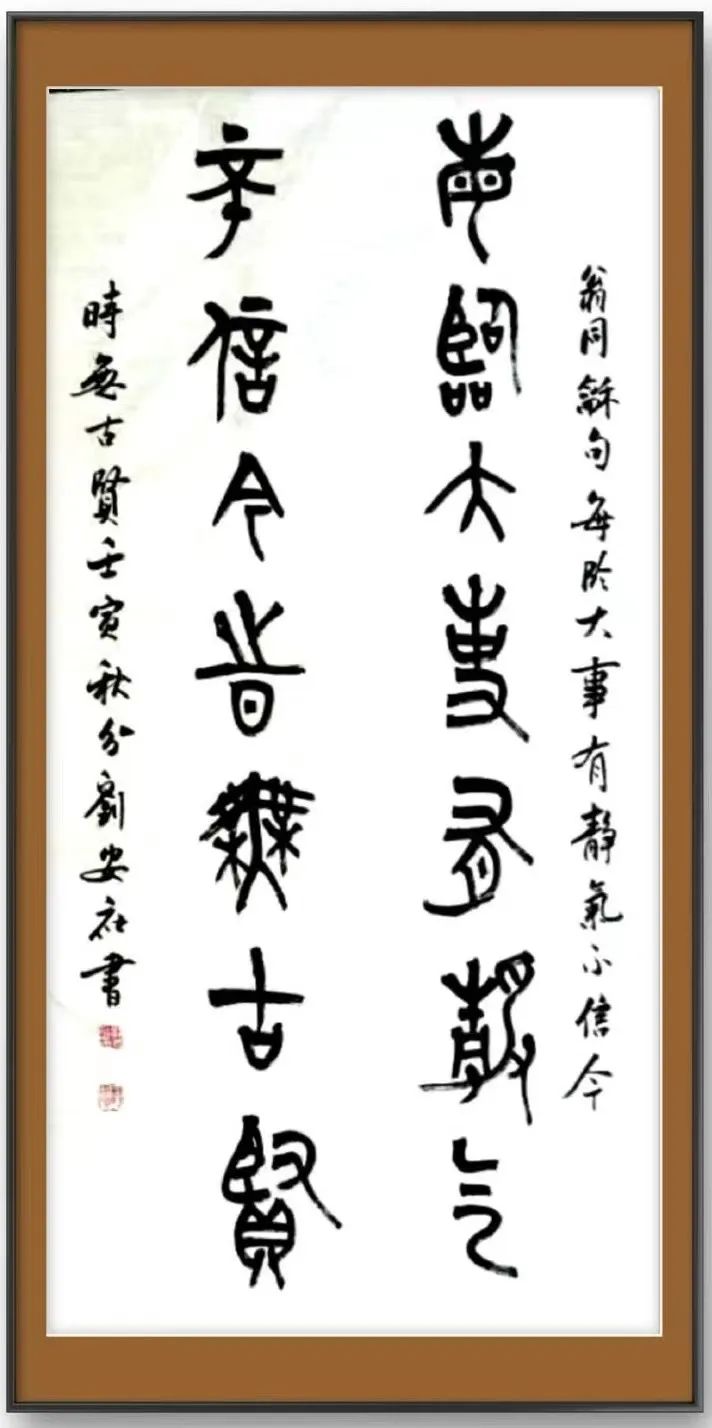 翁同龢句每臨大事有靜氣不信今
每臨大事有靜氣
不信今時無古賢
時無古賢壬寅秋分劉安書